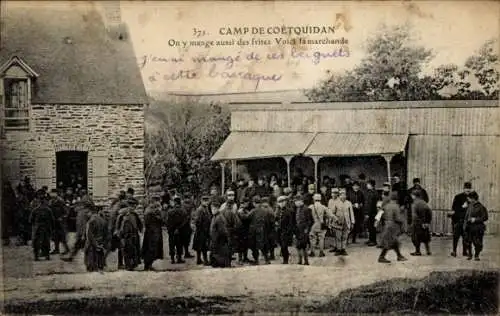 371. CAMP DE COËTQUIDAN
On y mange aussi des frites Voici la marchande
j'ai mangé de ces beignets
à cette baraque